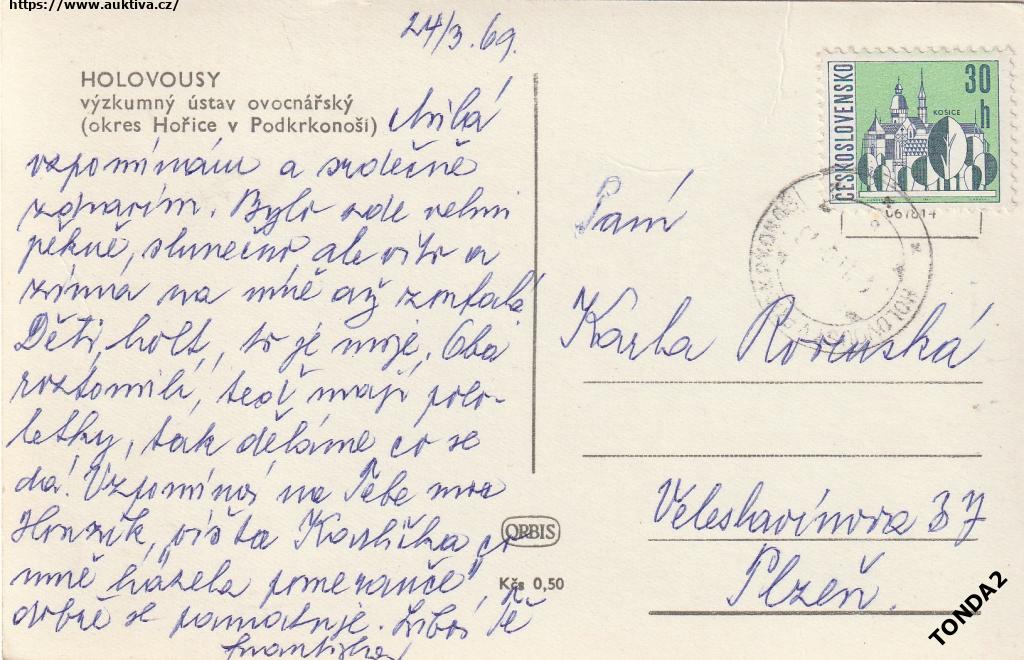 https://www.auktiva.cz/
24/3. 69.
HOLOVOUSY
výzkumný ústav ovocnářský
(okres Hořice v Podkrkonoší)
Milá
vzpomínám a srdečně
zdravím. Bylo zde velmi
pěkně, slunečno ale vítr a
zimma na mně až
Děti, holt, to je moje. Oba
roztomilí, teď mají polo-
letky, tak děláme co se
dá. Vzpomíná na Tebe moc
Honzík, "víš ta Karlička co
mně házela pomeranče",
dobře se pamatuje. Líbá Tě
Františka
ORBIS
Kčs 0,50
ČESKOSLOVENSKO
30
h
KOŠICE
Paní
Karla
Veleslavínova 37
Plzeň.
TONDA2